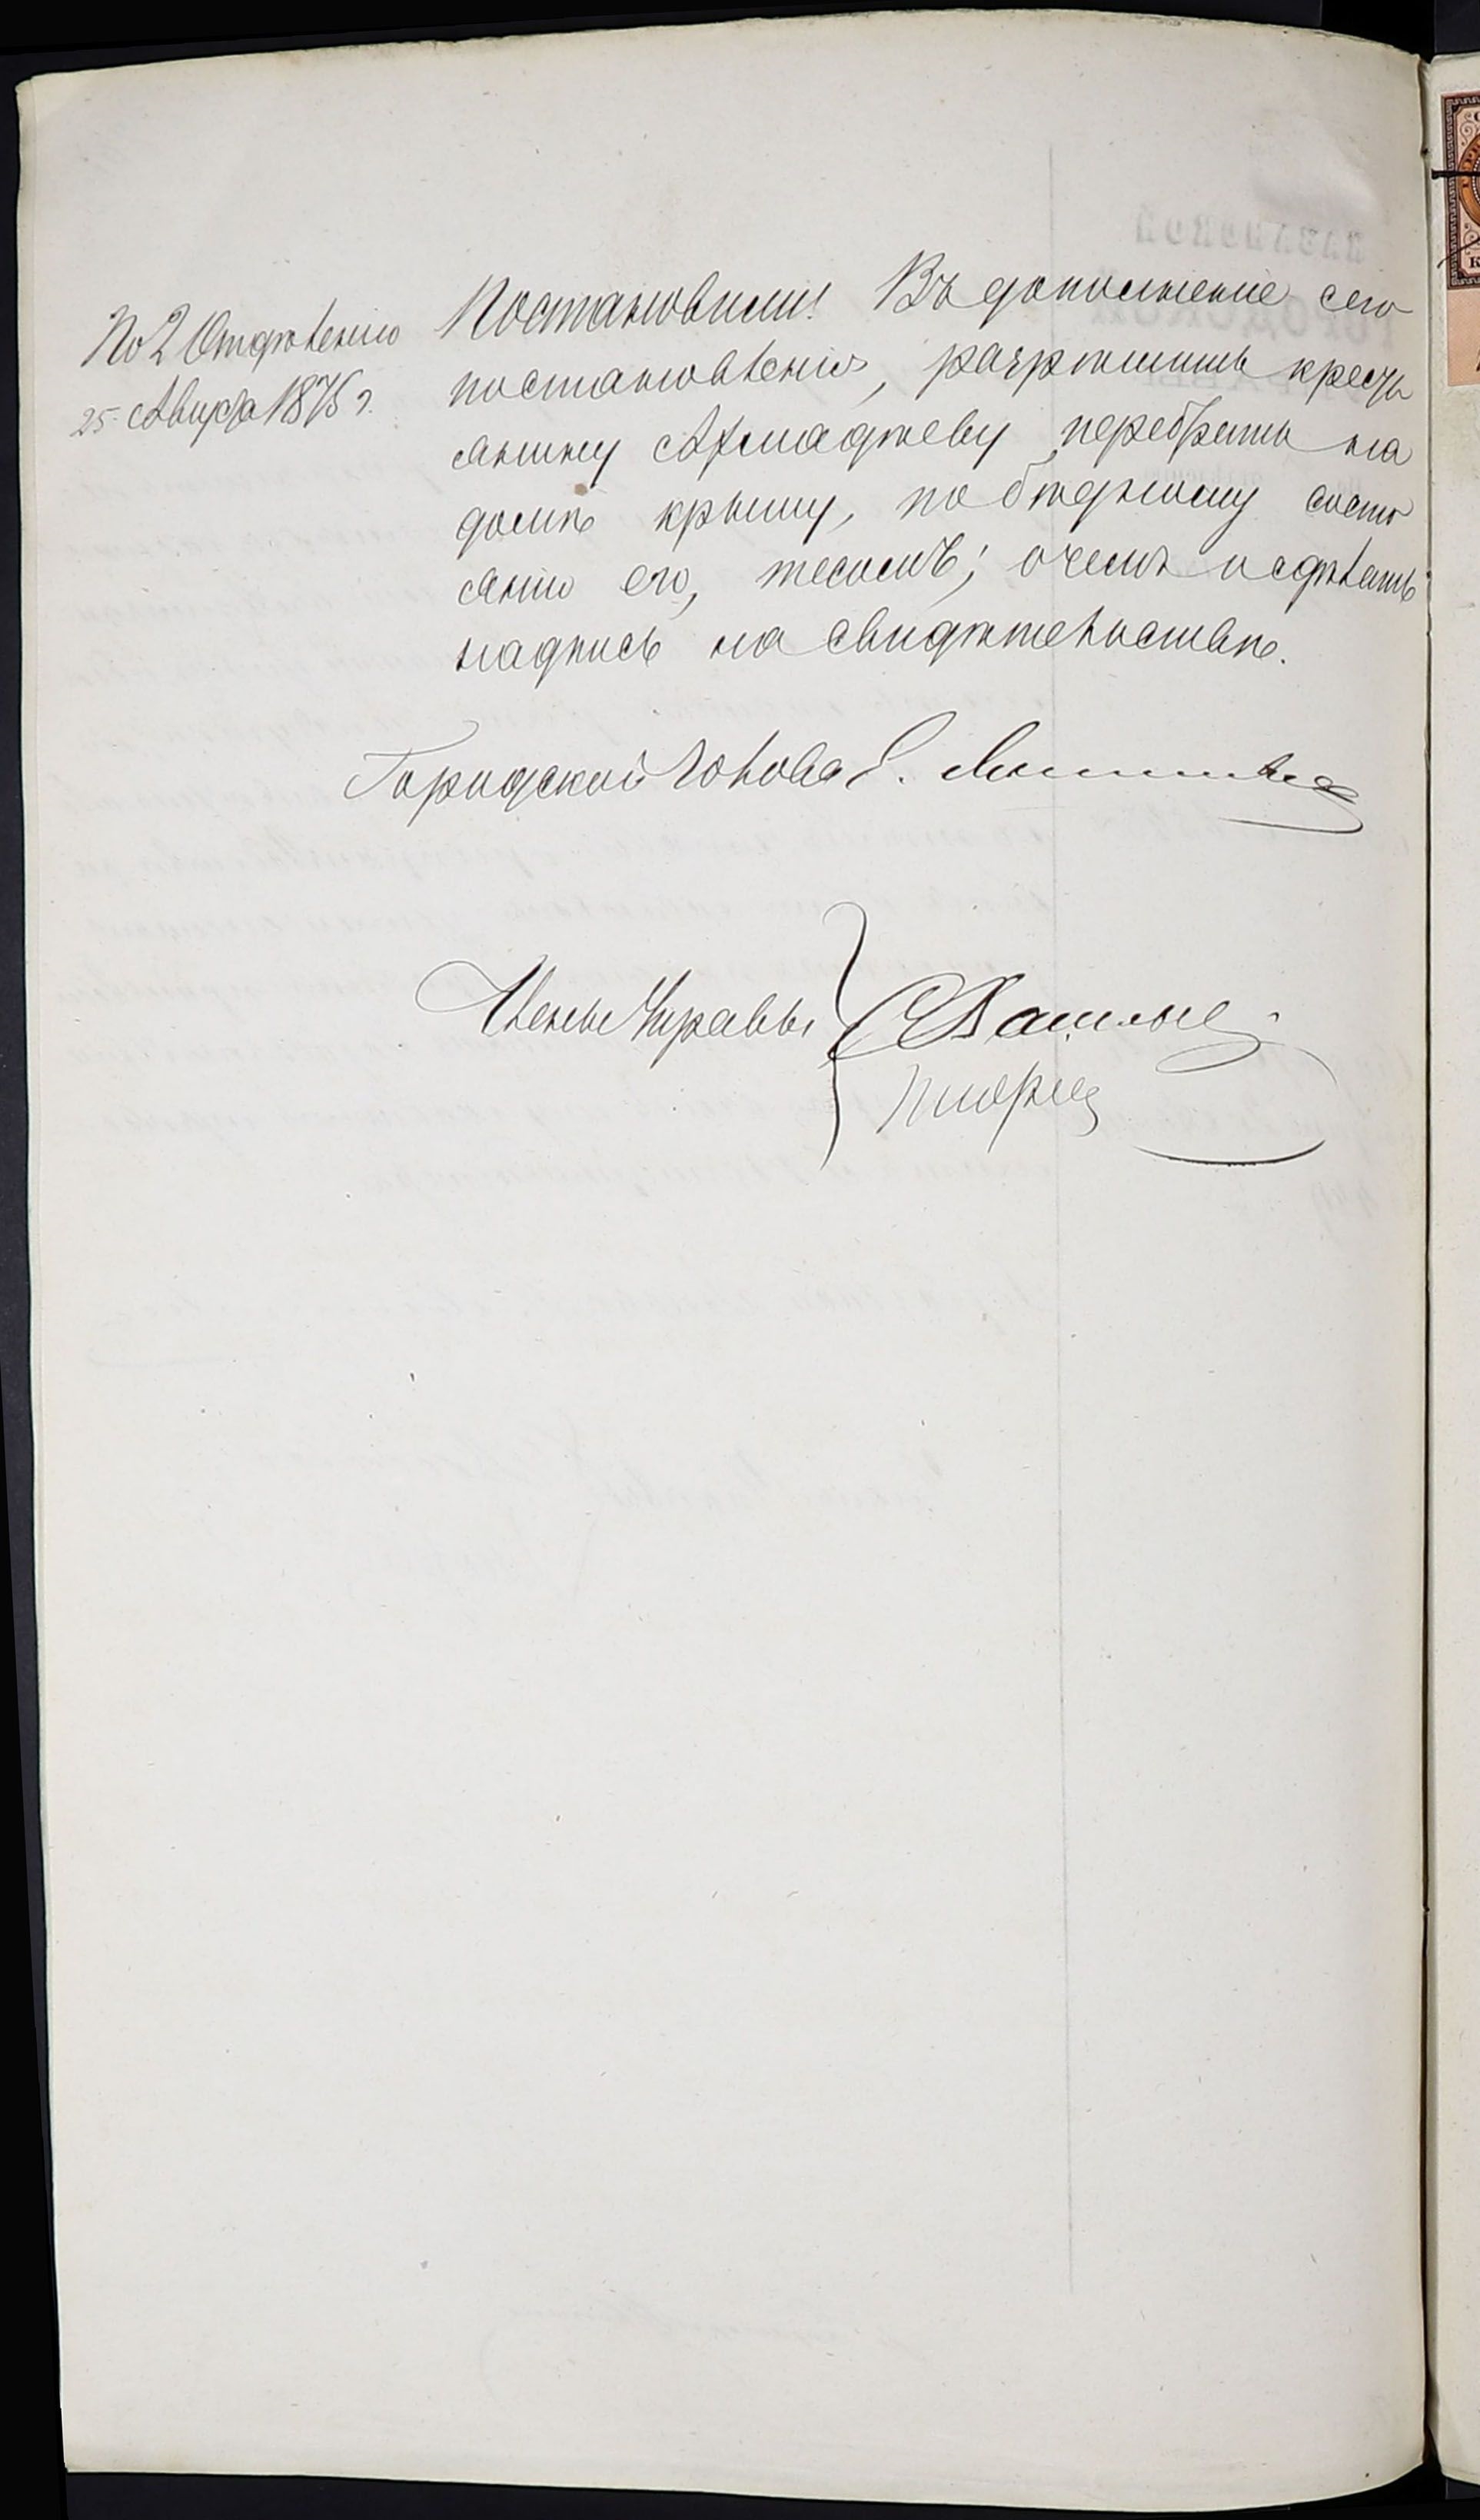 По 2 Отдѣленію
25 Августа 1875 г.
Постановили: Въ дополненіе сего
постановленія, разрѣшить кресть
янину Ахмадѣеву перебрать на
домѣ крышу, по бѣдному состо
янію его, тесомъ; о чемъ и сдѣлать
надпись на свидѣтельствѣ.
Городской Голова Е.
Члены Управы